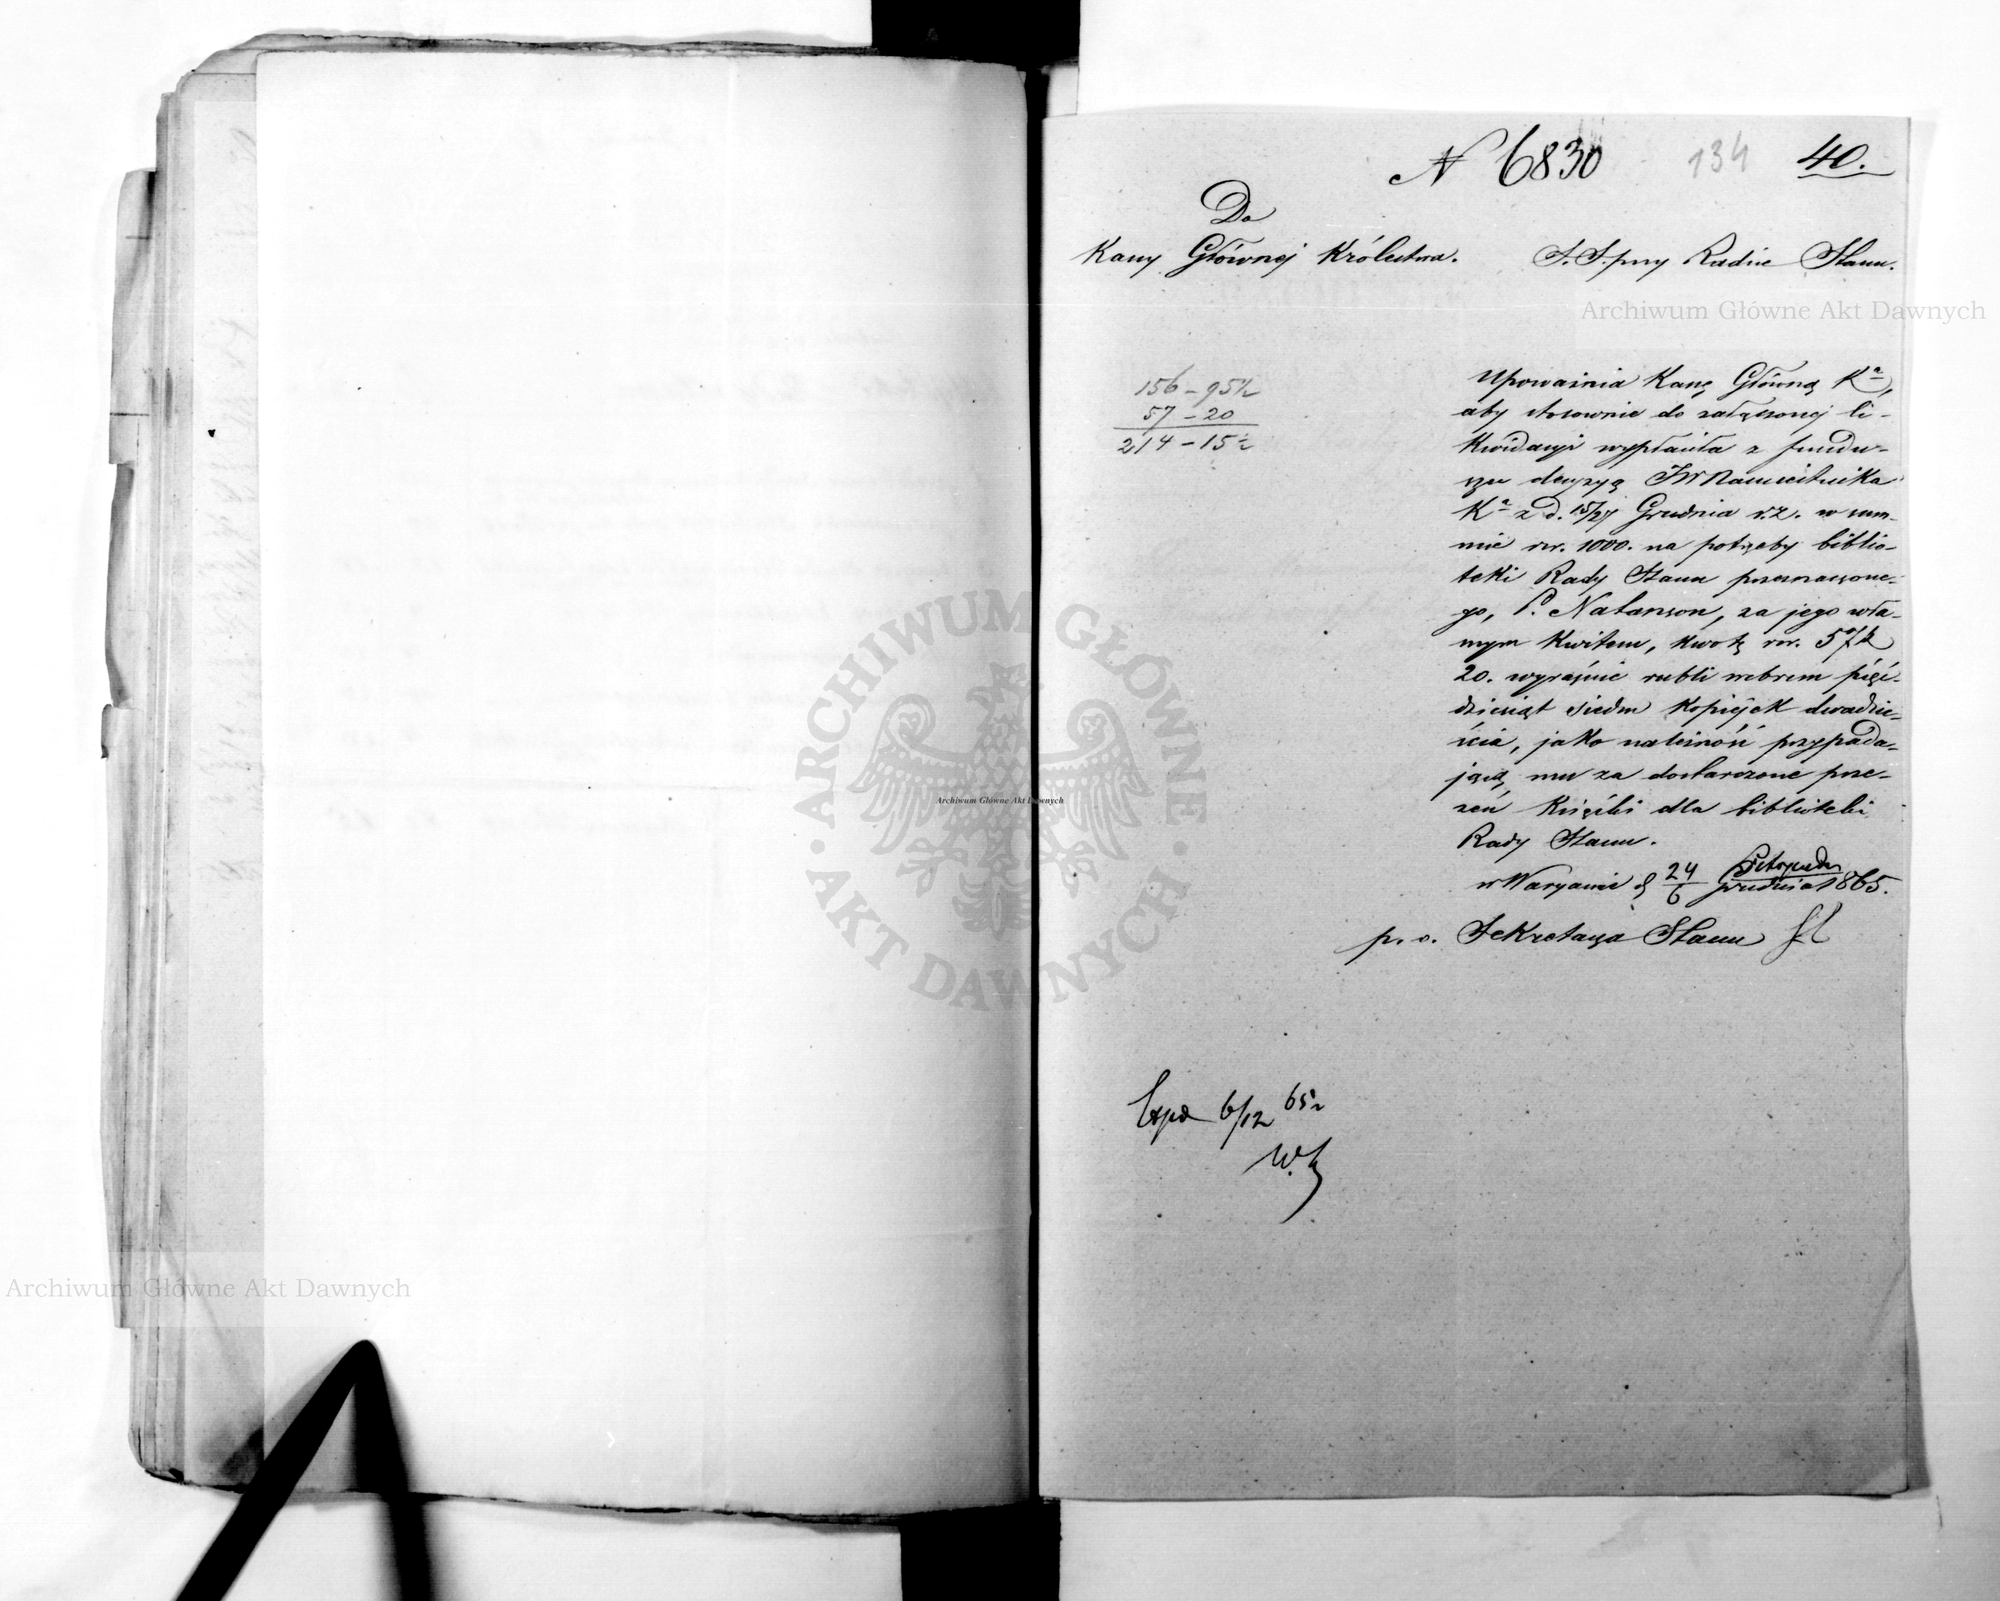 N 6830 134 40.
Do
Kassy Głównej Królestwa. S. S. przy Radzie Stanu.
Archiwum Główne Akt Dawnych
156 - 95½
57 - 20
214 - 15½
Upoważnia Kassę Główną Kª,
aby stosownie do załączonej li-
kwidacyi wypłaciła z fundu-
szu decyzyą JW Namiestnika
Kª z d. 15/27 Grudnia r.z. w sum-
mie rsr. 1000. na potrzeby biblio-
teki Rady Stanu przeznaczone-
go, P. Natanson, za jego wła-
snym kwitem, kwotę rsr. 57 k
20. wyraźnie rubli srebrem pięć-
dziesiąt siedm kopiejek dwadzie-
ścia, jako należność przypada-
jącą mu za dostarczone prze-
zeń książki dla biblioteki
Rady Stanu.
w Warszawie d 24/6 Listopada/grudnia 1865.
p. o. Sekretarza Stanu
Exped 6/12 65 r
ARCHIWUM GŁÓWNE
AKT DAWNYCH
Archiwum Główne Akt Dawnych
Archiwum Główne Akt Dawnych